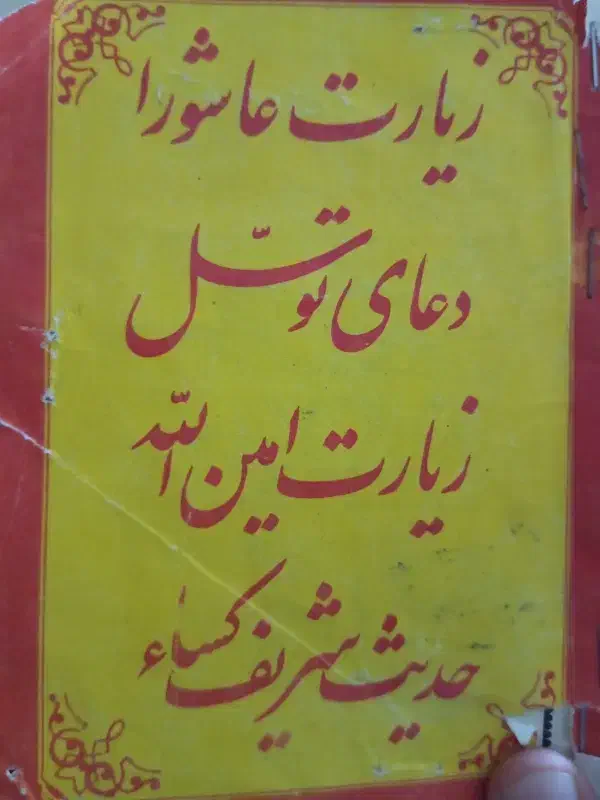 زیارت عاشورا
دعای توسّل
زیارت امین الله
حدیث شریف کساء